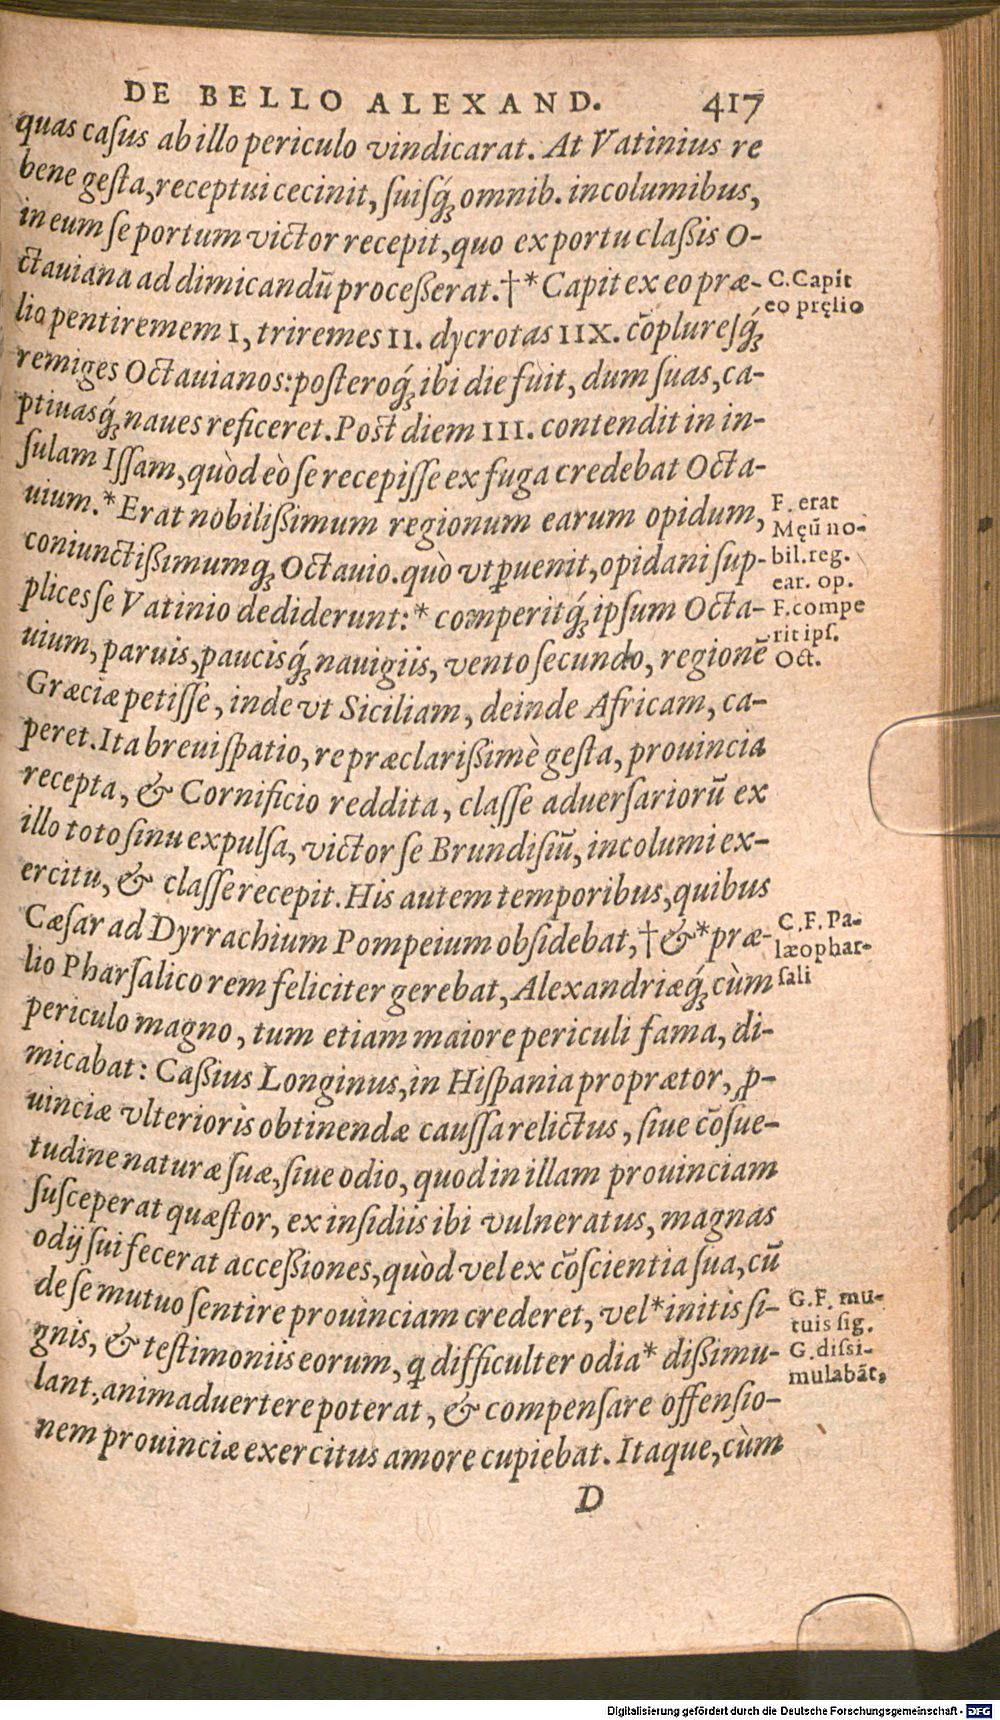 DE BELLO ALEXAND. 417
quas casus ab illo periculo vindicarat. At Vatinius re
bene gesta, receptui cecinit, suisq́; omnib. incolumibus,
in eum se portum victor recepit, quo ex portu claßis O-
ctauiana ad dimicandū proceßerat.†*Capit ex eo præ-
lio pentiremem I, triremes II. dycrotas IIX. cōpluresq́;
remiges Octauianos: posteroq́; ibi die fuit, dum suas, ca-
ptiuasq́; naues reficeret. Post diem III. contendit in in-
sulam Issam, quòd eò se recepisse ex fuga credebat Octa-
uium.*Erat nobilißimum regionum earum opidum,
coniunctißimumq; Octauio. quò vt ꝑuenit, opidani sup-
plices se Vatinio dediderunt:* comperitq́; ipsum Octa-
uium, paruis, paucisq́; nauigiis, vento secundo, regionē
Græciæ petisse, inde vt Siciliam, deinde Africam, ca-
peret. Ita breui spatio, re præclarißimè gesta, prouincia
recepta, & Cornificio reddita, classe aduersariorū ex
illo toto sinu expulsa, victor se Brundisiū, incolumi ex-
ercitu, & classe recepit. His autem temporibus, quibus
Cæsar ad Dyrrachium Pompeium obsidebat,†&*præ-
lio Pharsalico rem feliciter gerebat, Alexandriæq́; cùm
periculo magno, tum etiam maiore periculi fama, di-
micabat: Caßius Longinus, in Hispania proprætor, ꝓ-
uinciæ vlterioris obtinendæ caussa relictus, siue cōsue-
tudine naturæ suæ, siue odio, quod in illam prouinciam
susceperat quæstor, ex insidiis ibi vulneratus, magnas
odij sui fecerat acceßiones, quòd vel ex cōscientia sua, cū
de se mutuo sentire prouinciam crederet, vel*initis si-
gnis, & testimoniis eorum, ꝗ difficulter odia* dißimu-
lant, animaduertere poterat, & compensare offensio-
nem prouinciæ exercitus amore cupiebat. Itaque, cùm
D
C. Capit
eo pręlio
F. erat
Męū no-
bil. reg.
ear. op.
F. compe
rit ips.
Oct.
C. F. Pa-
læophar-
sali
G. F. mu-
tuis sig.
G. dissi-
mulabāt,
Digitalisierung gefördert durch die Deutsche Forschungsgemeinschaft - DFG